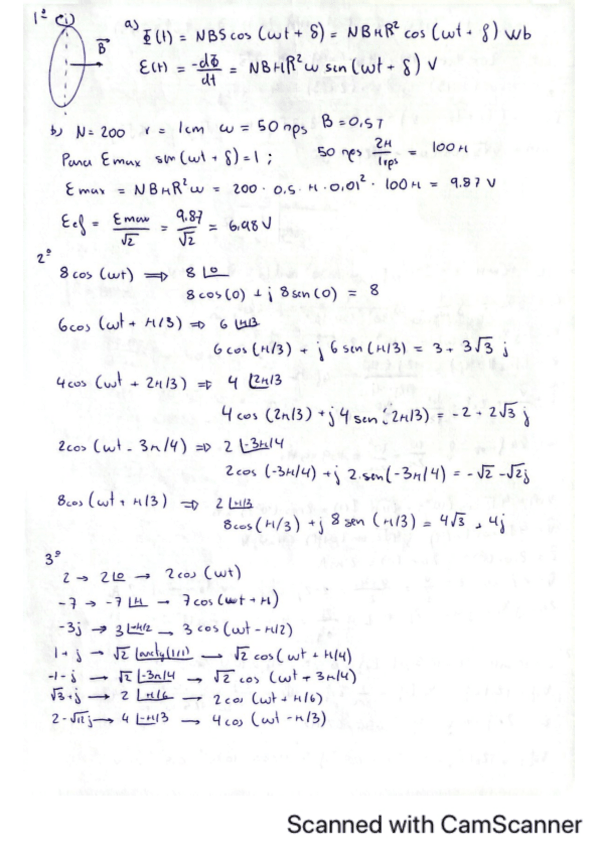 1º
a) Φ(t) = NBS cos (wt + δ) = NBπR² cos (wt + δ) wb
B⃗
ε(t) = -dΦ/dt = NBπR² w sin (wt + δ) V
b) N = 200 r = 1cm w = 50 rps B = 0.5T
Para Emax sin (wt + δ) = 1 ; 50 rps 2π/1rps = 100π
Emax = NBπR² w = 200 · 0.5 · π · 0.01² · 100π = 9.87 V
Eef = Emax/√2 = 9.87/√2 = 6.98 V
2º
8 cos (wt) ⇒ 8 ∠0
8 cos(0) + j 8 sen(0) = 8
6 cos (wt + π/3) ⇒ 6 ∠π/3
6 cos (π/3) + j 6 sen (π/3) = 3 + 3√3 j
4 cos (wt + 2π/3) ⇒ 4 ∠2π/3
4 cos (2π/3) + j 4 sen (2π/3) = -2 + 2√3 j
2 cos (wt - 3π/4) ⇒ 2 ∠-3π/4
2 cos (-3π/4) + j 2 · sen (-3π/4) = -√2 - √2j
8 cos (wt + π/3) ⇒ 2 ∠π/3
8 cos (π/3) + j 8 sen (π/3) = 4√3 + 4j
3º
2 → 2 ∠0 → 2 cos (wt)
-7 → -7 ∠π → 7 cos (wt + π)
-3j → 3 ∠-π/2 → 3 cos (wt - π/2)
1 + j → √2 ∠arctg(1/1) → √2 cos (wt + π/4)
-1 - j → √2 ∠-3π/4 → √2 cos (wt + 3π/4)
√3 + j → 2 ∠π/6 → 2 cos (wt + π/6)
2 - √12 j → 4 ∠-π/3 → 4 cos (wt - π/3)
Scanned with CamScanner